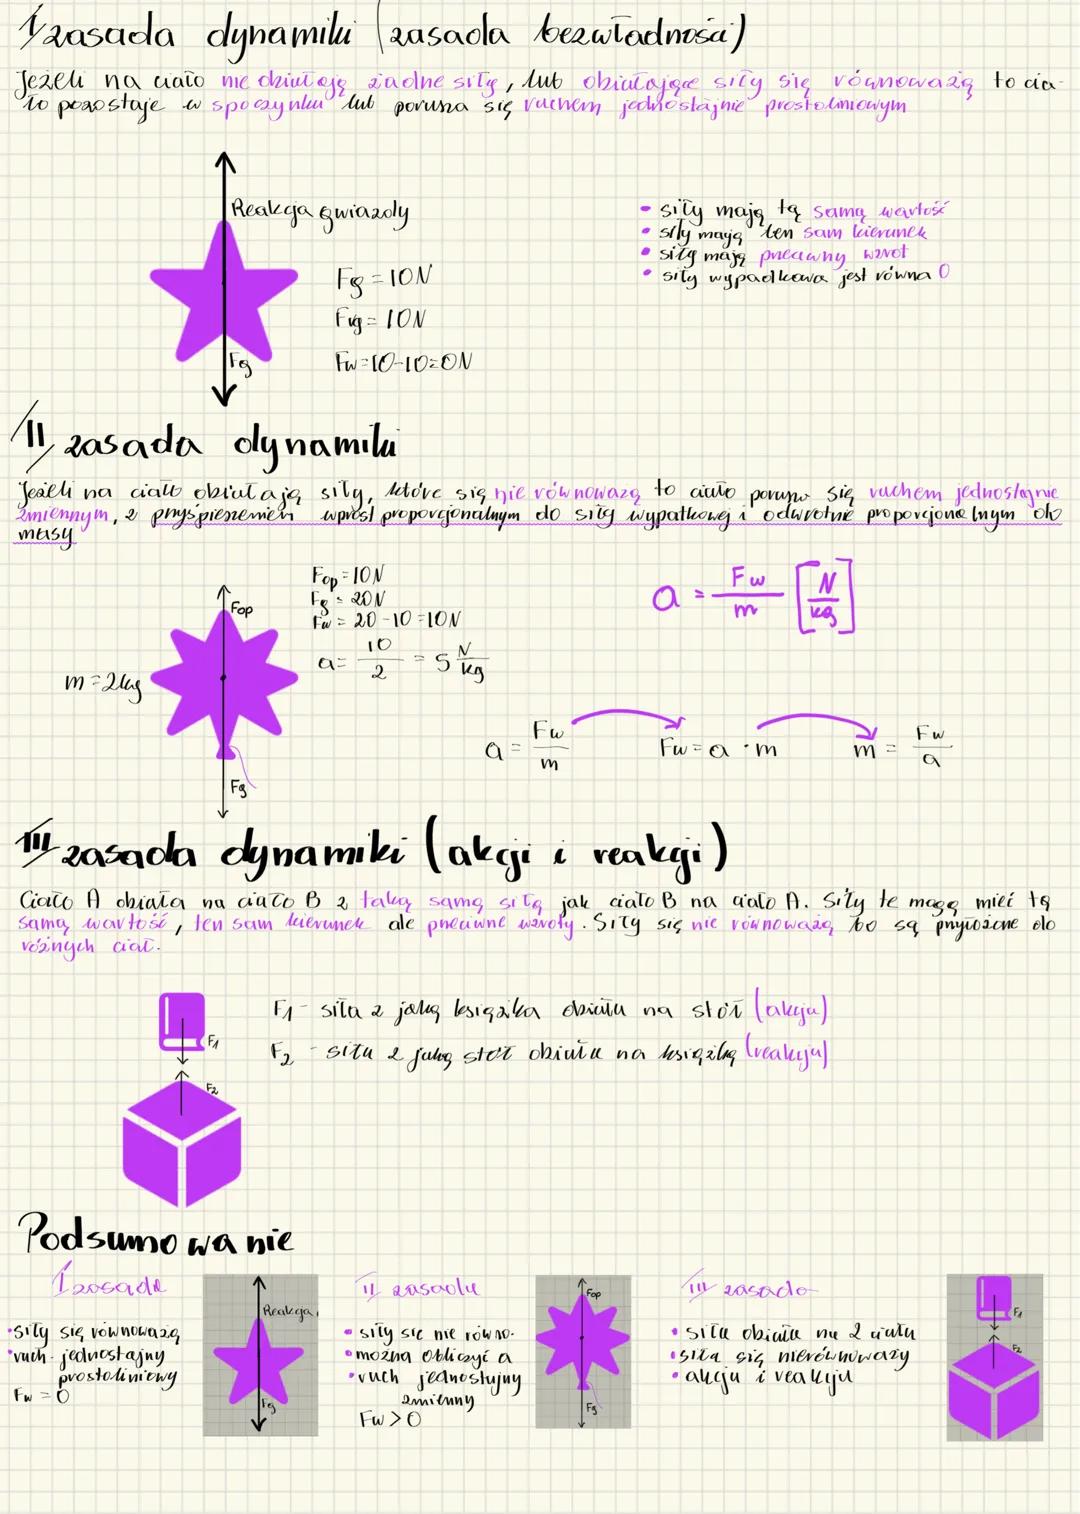 I zasada dynamiki (zasada bezwładności)
Jeżeli na ciało nie działają żadne siły, lub działające siły się równoważą to cia-
ło pozostaje w spoczynku lub porusza się ruchem jednostajnie prostoliniowym
Reakcja gwiazdy
Fg = 10N
F = 10N
Fw = 10-10=0N
Fg
• siły mają tą samą wartość
• siły mają ten sam kierunek
• siły mają przeciwny zwrot
• siły wypadkowa jest równa 0
II zasada dynamiki
Jeżeli na ciało działają siły, które się nie równoważą to ciało porusza się ruchem jednostajnie
zmiennym, z przyśpieszeniem wprost proporcjonalnym do siły wypatkowej i odwrotnie proporcjonalnym do
masy
Fop = 10N
Fg = 20N
Fw = 20-10=10N
a = 10/2 = 5 N/kg
Fop
m = 2kg
Fg
a = Fw/m [N/kg]
a = Fw/m Fw = a · m m = Fw/a
III zasada dynamiki (akcji i reakcji)
Ciało A działa na ciało B z taką samą siłą jak ciało B na ciało A. Siły te mają mieć tą
samą wartość, ten sam kierunek ale przeciwne zwroty. Siły się nie równoważą bo są przyłożone do
różnych ciał.
F1 - siła z jaką książka działa na stół (akcja)
F2 - siła z jaką stół działa na książkę (reakcja)
F1
F2
Podsumowanie
I zasada
• siły się równoważą
• ruch jednostajny
prostoliniowy
Fw = 0
Reakcja
Fg
II zasada
• siły się nie równo.
• można obliczyć a
• ruch jednostajny
zmienny
Fw > 0
Fop
Fg
III zasada
• siła działa na 2 ciała
• siła się nierównoważy
• akcja i reakcja
F1
F2